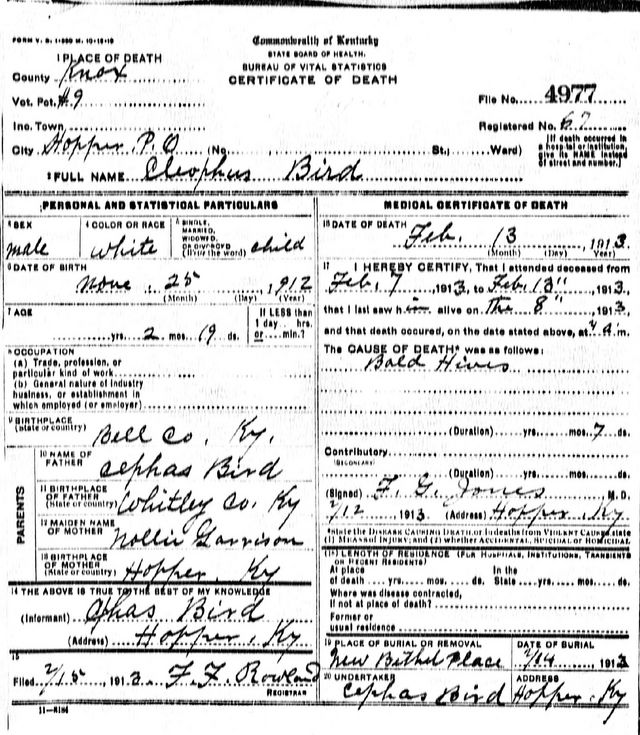 FORM V. S. 1-
Commonwealth of Kentucky
STATE BOARD OF HEALTH.
BUREAU OF VITAL STATISTICS
CERTIFICATE OF DEATH
1 PLACE OF DEATH
County Knox
Vot. Pct. #9
File No. 4977
Inc. Town
Registered No. 67
City Hopper P.O (No. St.; Ward)
[If death occurred in a hospital or institution, give its NAME instead of street and number.]
2 FULL NAME Cleophus Bird
PERSONAL AND STATISTICAL PARTICULARS
3 SEX
male
4 COLOR OR RACE
white
5 SINGLE, MARRIED, WIDOWED, OR DIVORCED
(Write the word) child
6 DATE OF BIRTH
25 1912
(Month) (Day) (Year)
7 AGE
yrs. 2 mos. 19 ds.
If LESS than
1 day hrs.
or min.?
8 OCCUPATION
(a) Trade, profession, or
particular kind of work
(b) General nature of Industry
business, or establishment in
which employed (or employer)
9 BIRTHPLACE
(State or country) Bell Co. Ky.
PARENTS
10 NAME OF
FATHER Cephas Bird
11 BIRTHPLACE
OF FATHER
(State or country) Whitley Co. Ky
12 MAIDEN NAME
OF MOTHER Nollie Garrison
13 BIRTHPLACE
OF MOTHER
(State or country) Hopper, Ky
14 THE ABOVE IS TRUE TO THE BEST OF MY KNOWLEDGE
(Informant) Bird
(Address) Hopper, Ky
15
Filed 2/15, 1913. F. F. Rowland
REGISTRAR
11-
MEDICAL CERTIFICATE OF DEATH
16 DATE OF DEATH
Feb. 13, 1913
(Month) (Day) Year
17 I HEREBY CERTIFY, That I attended deceased from
Feb. 7 1913, to Feb. 13", 1913,
that I last saw him alive on The 8" 1913,
and that death occured, on the date stated above, at 4 a.m.
The CAUSE OF DEATH* was as follows:
Bold Hives
(Duration) yrs. mos. 7 ds.
Contributory
(SECONDARY)
(Duration) yrs. mos. ds.
(Signed) F. G. Jones M.D.
2/12 1913 (Address) Hopper, Ky
*State the DISEASE CAUSING DEATH, or in deaths from VIOLENT CAUSES, state
(1) MEANS OF INJURY; and (2) whether ACCIDENTAL, SUICIDAL or HOMICIDAL.
18 LENGTH OF RESIDENCE (FOR HOSPITALS, INSTITUTIONS, TRANSIENTS
OR RECENT RESIDENTS)
At place In the
of death yrs. mos. ds. State yrs. mos. ds.
Where was disease contracted,
If not at place of death?
Former or
usual residence
19 PLACE OF BURIAL OR REMOVAL
New Bethel Place
DATE OF BURIAL
2/14, 1913
20 UNDERTAKER
Cephas Bird
ADDRESS
Hopper, Ky